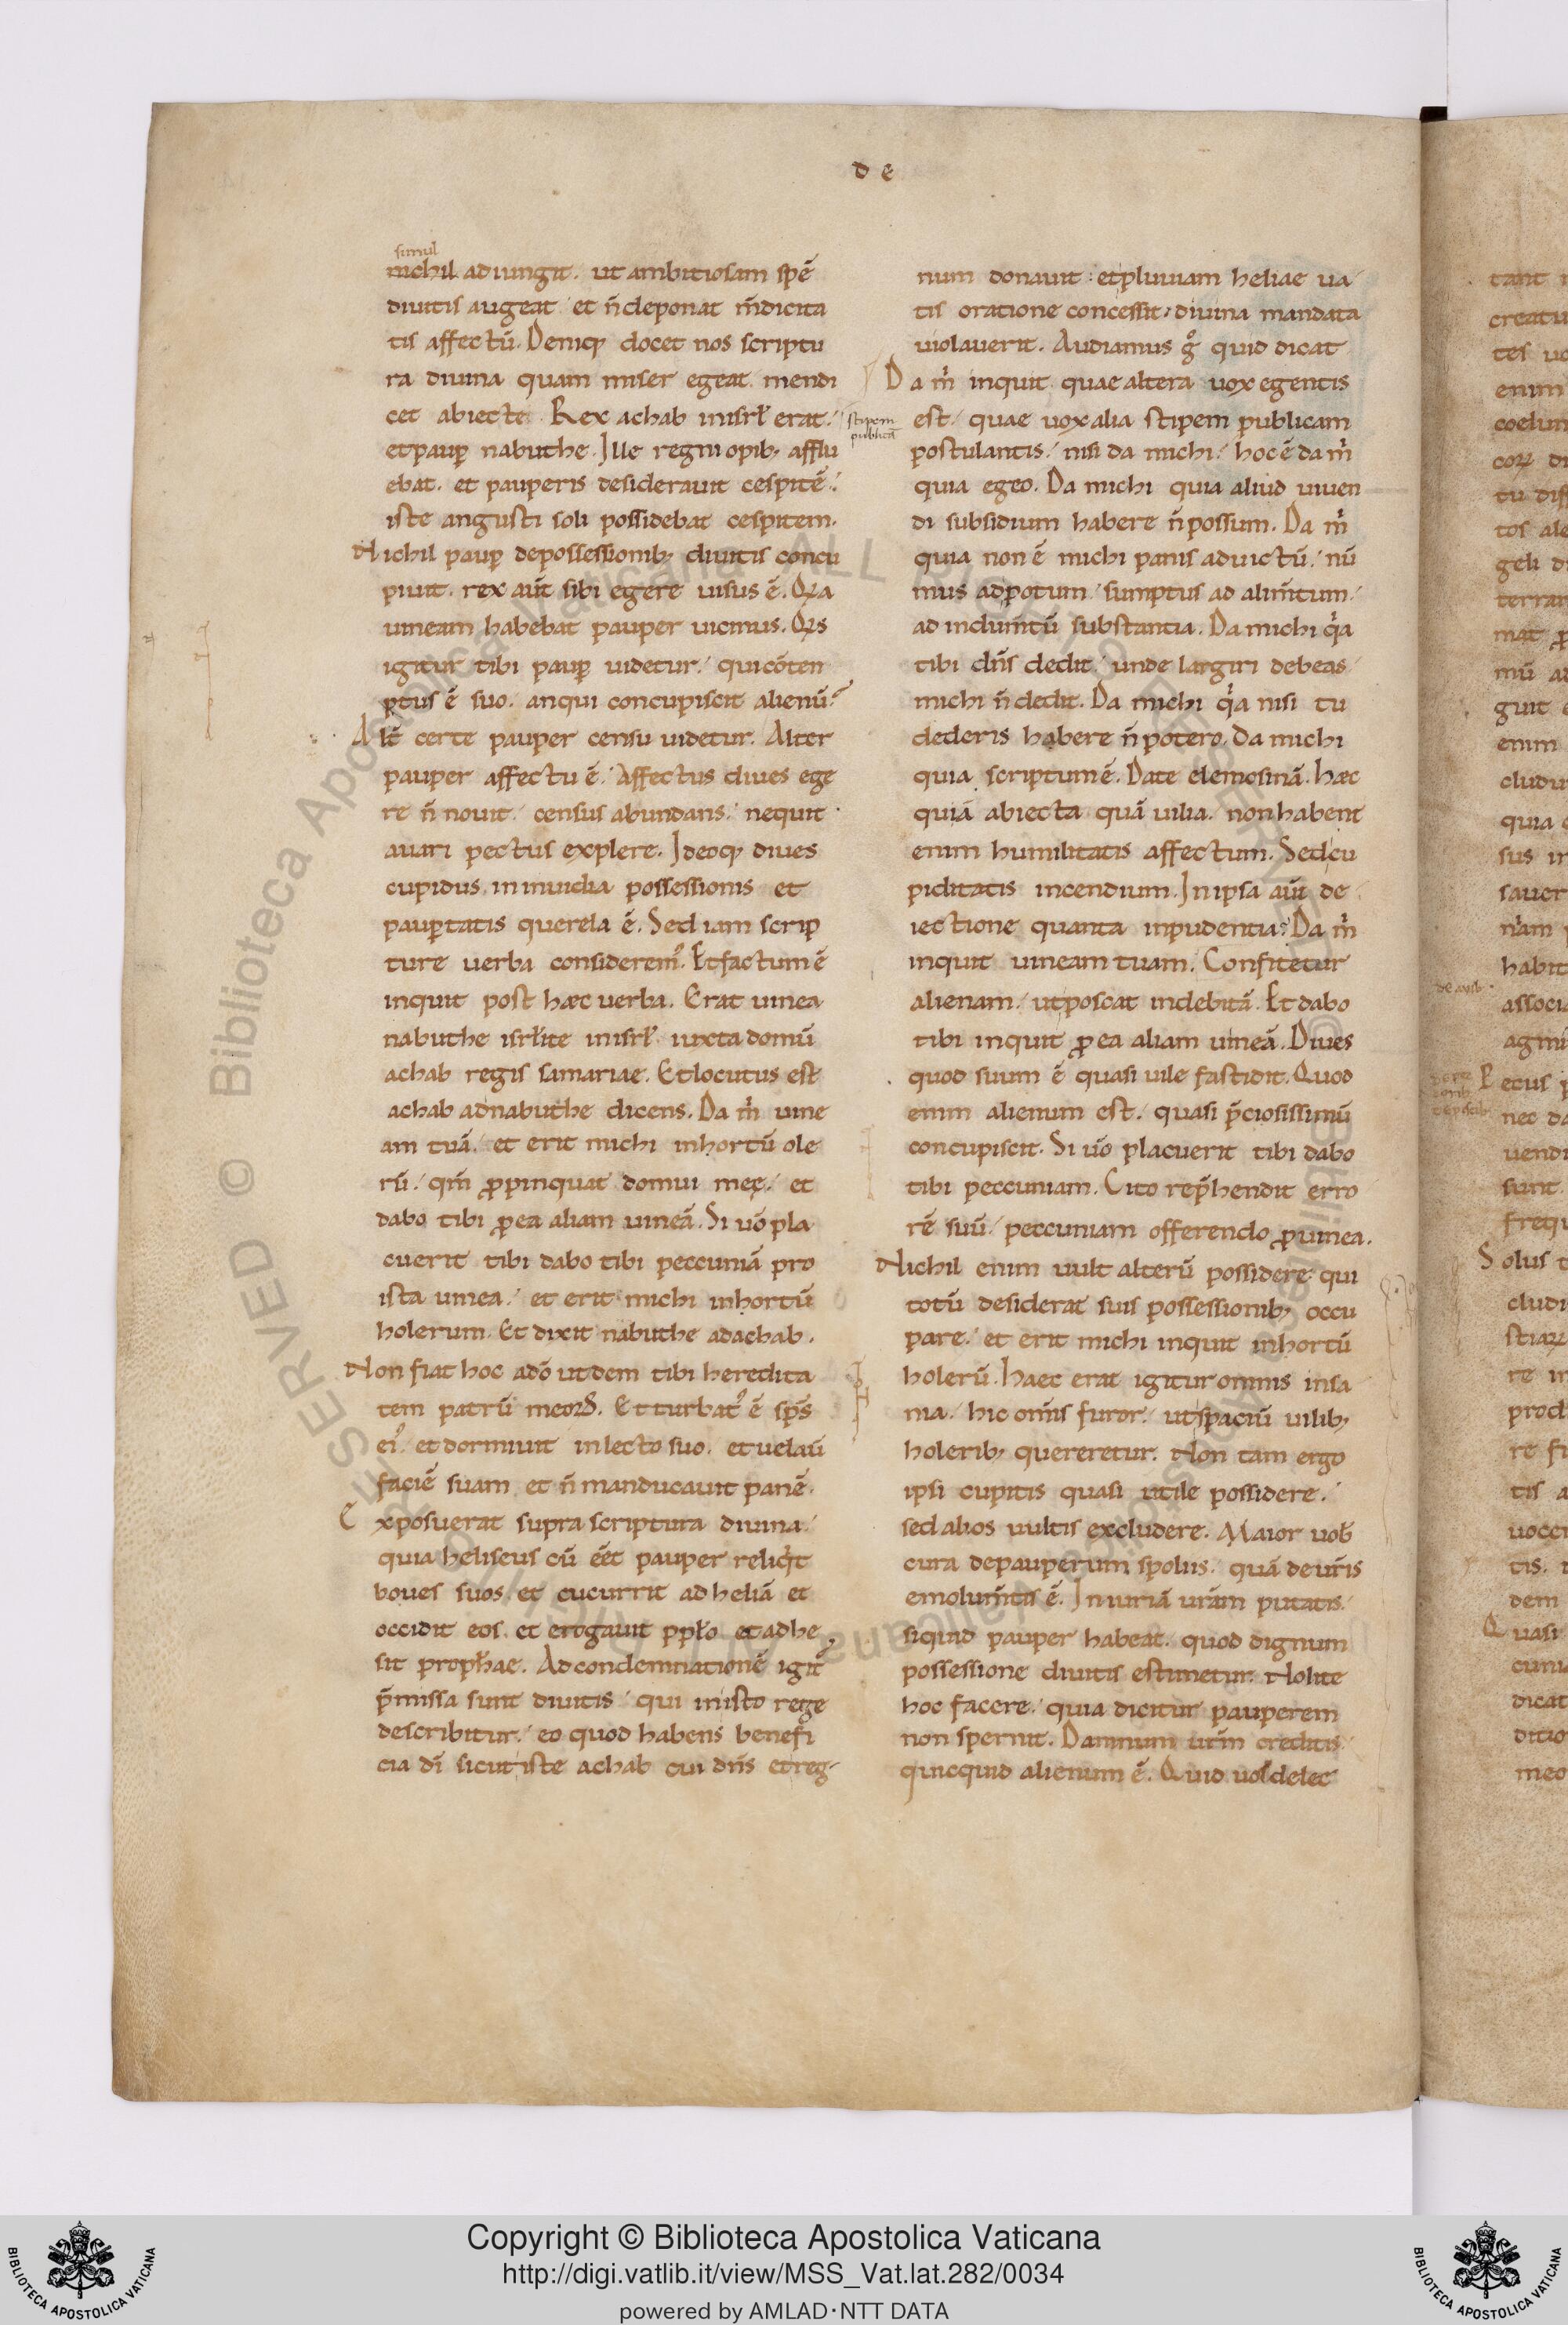 d e
simul
nichil adiungit. ut ambitiosam spē
diuitis augeat et n̄ deponat m̄dicita
tis affectū. Deniq; docet nos scriptu
ra diuina quam miser egeat mendi
cet abiecte. Rex achab in isrl̄ erat.
et paup nabuthe. Ille regni opib; afflu
ebat. et pauperis desiderauit cespitē.
iste angusti soli possidebat cespitem.
Nichil paup de possessionib; diuitis concu
piuit. rex aūt sibi egere uisus ē. Qa
uineam habebat pauper uicinus. Qs
igitur tibi paup uidetur. qui cōten
ptus ē suo. an qui concupiscit alienū?
Alt̄ certe pauper censu uidetur. Alter
pauper affectu ē. Affectus diues ege
re n̄ nouit. census abundans. nequit
auari pectus explere. Ideoq; diues
cupidus in inuidia possessionis et
paupertatis querela ē. Sed iam scrip
ture uerba considerem᾽. Et factum ē
inquit post hæc uerba. Erat uinea
nabuthe isrl̄ite in isrl̄ iuxta domū
achab regis samariae. Et locutus est
achab ad nabuthe dicens. Da m̉ uine
am tuā. et erit michi in hortū ole
rū. qm̄ ꝓpinquat domui meę. et
dabo tibi ꝓ ea aliam uineā. Si uō pla
cuerit tibi dabo tibi peccuniā pro
ista uinea. et erit michi in hortū
holerum. Et dixit nabuthe ad achab.
Non fiat hoc a dō ut dem tibi heredita
tem patrū meoꝝ. Et turbat᾽ ē sps̄
ei᾽. et dormiuit in lecto suo. et uelau̅
faciē suam et n̄ manducauit panē.
Exposuerat supra scriptura diuina.
quia heliseus cū eēt pauper reliqͥt
boues suos et cucurrit ad heliā et
occidit eos. et erogauit ppl̄o et adhe
sit prophae. Ad condemnationē igit᾽
p̄missa sunt diuitis qui in isto rege
describitur. eo quod habens benefi
cia dī sicut iste achab cui dn̄s et reg
num donauit: et pluuiam heliae ua
tis oratione concessit, diuina mandata
uiolauerit. Audiamus gͦ quid dicat
Da m̉ inquit quae altera uox egentis
stipem
publicā
est. quae uox alia stipem publicam
postulantis. nisi da michi. hoc ē da m̉
quia egeo. Da michi quia aliud uiuen
di subsidium habere n̄ possum. Da m̉
quia non ē michi panis ad uictū. nū
mus ad potum. sumptus ad alim̄tum.
ad indum̄tū substantia. Da michi qͥa
tibi dn̄s dedit. unde largiri debeas
michi n̄ dedit. Da michi qͥa nisi tu
dederis habere n̄ potero. Da michi
quia scriptum ē. Date elemosinā. Hæc
quiā abiecta quā uilia. non habent
enim humilitatis affectum. Sed cu
piditatis incendium. In ipsa aūt de
iectione quanta inpudentia? Da m̉
inquit uineam tuam. Confitetur
alienam. ut poscat indebitā. Et dabo
tibi inquit ꝓ ea aliam uineā. Diues
quod suum ē quasi uile fastidit. Quod
enim alienum est. quasi p̄ciosissimū
concupiscit. Si uō placuerit tibi dabo
tibi peccuniam. Cito rep̄hendit erro
rē suū. peccuniam offerendo ꝓ uinea.
Nichil enim uult alterū possidere qui
totū desiderat suis possessionib; occu
pare. et erit michi inquit in hortū
holerū. Haec erat igitur omnis insa
nia. hic om̄s furor. ut spaciū uilib;
holerib; quereretur. Non tam ergo
ipsi cupitis quasi utile possidere.
sed alios uultis excludere. Maior uob̄
cura de pauperum spoliis. quā de ur̄is
emolum̄tis ē. Iniuriā ur̄am putatis.
siquid pauper habeat. quod dignum
possessione diuitis estimetur. Nolite
hoc facere. quia dicitur pauperem
non spernit. Damnum ur̄m creditis.
quicquid alienum ē. Quid uos delec
Copyright © Biblioteca Apostolica Vaticana
http://digi.vatlib.it/view/MSS_Vat.lat.282/0034
powered by AMLAD·NTT DATA
BIBLIOTECA APOSTOLICA VATICANA
BIBLIOTECA APOSTOLICA VATICANA